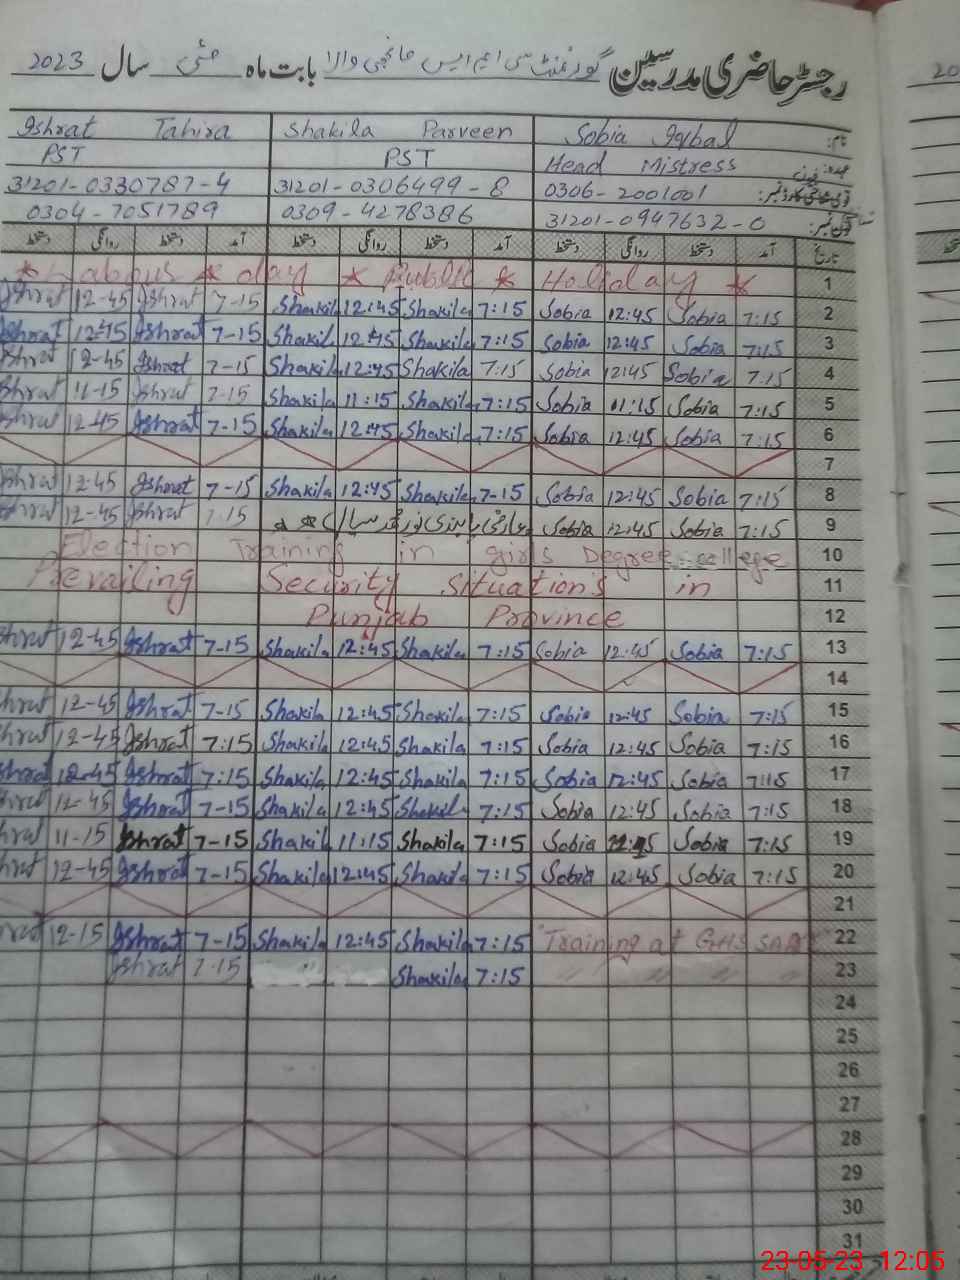 رجسٹر حاضری مدرسین گورنمنٹ سی ایم ایس والا بابت ماہ مئی سال 2023
نام: Sobia Iqbal Shakila Parveen Ishrat Tahira
عہدہ: Head Mistress PST PST
0306-2001001 31201-0306499-8 31201-0330787-4
31201-0947632-0 0309-4278386 0304-7051789
تاریخ آمد دستخط روانگی دستخط آمد دستخط روانگی دستخط آمد دستخط روانگی دستخط
1 * Labour's * day * Public * Holiday *
2 7:15 Sobia 12:45 Sobia 7:15 Shakila 12:45 Shakila 7-15 Ishrat 12-45 Ishrat
3 7:15 Sobia 12:45 Sobia 7:15 Shakila 12:45 Shakila 7-15 Ishrat 12:45 Ishrat
4 7:15 Sobia 12:45 Sobia 7:15 Shakila 12:45 Shakila 7-15 Ishrat 12-45 Ishrat
5 7:15 Sobia 11:15 Sobia 7:15 Shakila 11:15 Shakila 7-15 Ishrat 11-15 Ishrat
6 7:15 Sobia 12:45 Sobia 7:15 Shakila 12:45 Shakila 7-15 Ishrat 12-45 Ishrat
7
8 7:15 Sobia 12:45 Sobia 7-15 Shakila 12:45 Shakila 7-15 Ishrat 12-45 Ishrat
9 7:15 Sobia 12:45 Sobia 7.15 Ishrat 12-45 Ishrat
10 Election Training in girls Degree college
11 Prevailing Security situation's in
12 Punjab Province
13 7:15 Sobia 12:45 Sobia 7:15 Shakila 12:45 Shakila 7-15 Ishrat 12-45 Ishrat
14
15 7:15 Sobia 12:45 Sobia 7:15 Shakila 12:45 Shakila 7-15 Ishrat 12-45 Ishrat
16 7:15 Sobia 12:45 Sobia 7:15 Shakila 12:45 Shakila 7:15 Ishrat 12-45 Ishrat
17 7:15 Sobia 12:45 Sobia 7:15 Shakila 12:45 Shakila 7:15 Ishrat 12-45 Ishrat
18 7:15 Sobia 12:45 Sobia 7:15 Shakila 12:45 Shakila 7-15 Ishrat 12-45 Ishrat
19 7:15 Sobia Sobia 7:15 Shakila 11:15 Shakila 7-15 Ishrat 11-15 Ishrat
20 7:15 Sobia 12:45 Sobia 7:15 Shakila 12:45 Shakila 7-15 Ishrat 12-45 Ishrat
21
22 "Training at GHS 7:15 Shakila 12:45 Shakila 7-15 Ishrat 12-15 Ishrat
23 7:15 Shakila 7.15 Ishrat
24
25
26
27
28
29
30
31
23-05-23 12:05